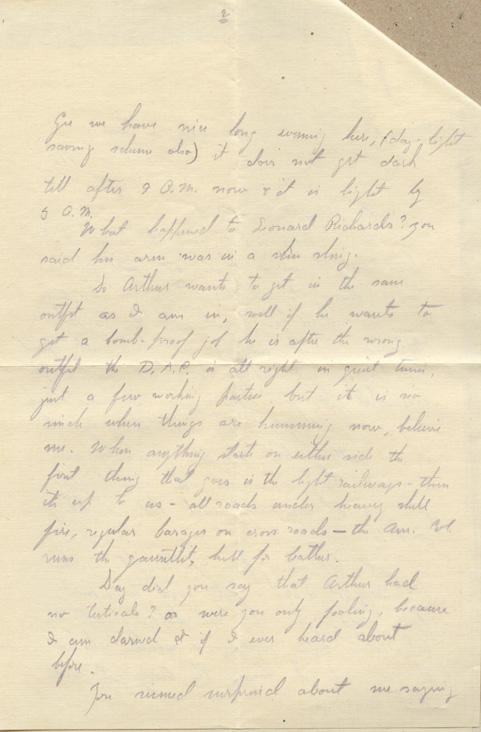 2
Gee we have nice long evening here, (day-light
saving scheme also) it does not get dark
till after 9 P.M. now & it is light by
5 A.M.
What happened to Leonard Richards? you
said his arm was in a sling.
So Arthur wants to get in the same
outfit as I am in, well if he wants to
get a bomb-proof job he is after the wrong
outfit the D.A.P. is all right in quiet times,
just a few working parties but it is no
cinch when things are humming now, believe
me. When anything starts on either side the
first thing that goes is the light railways - then
its up to us - all roads under heavy shell
fire, regular barages on cross roads - the Am. Col
runs the gauntlet, hell for leather.
Say did you say that Arthur had
no testicals? or were you only fooling, because
I am darned if I ever heard about
before.
You seemed surprised about me saying